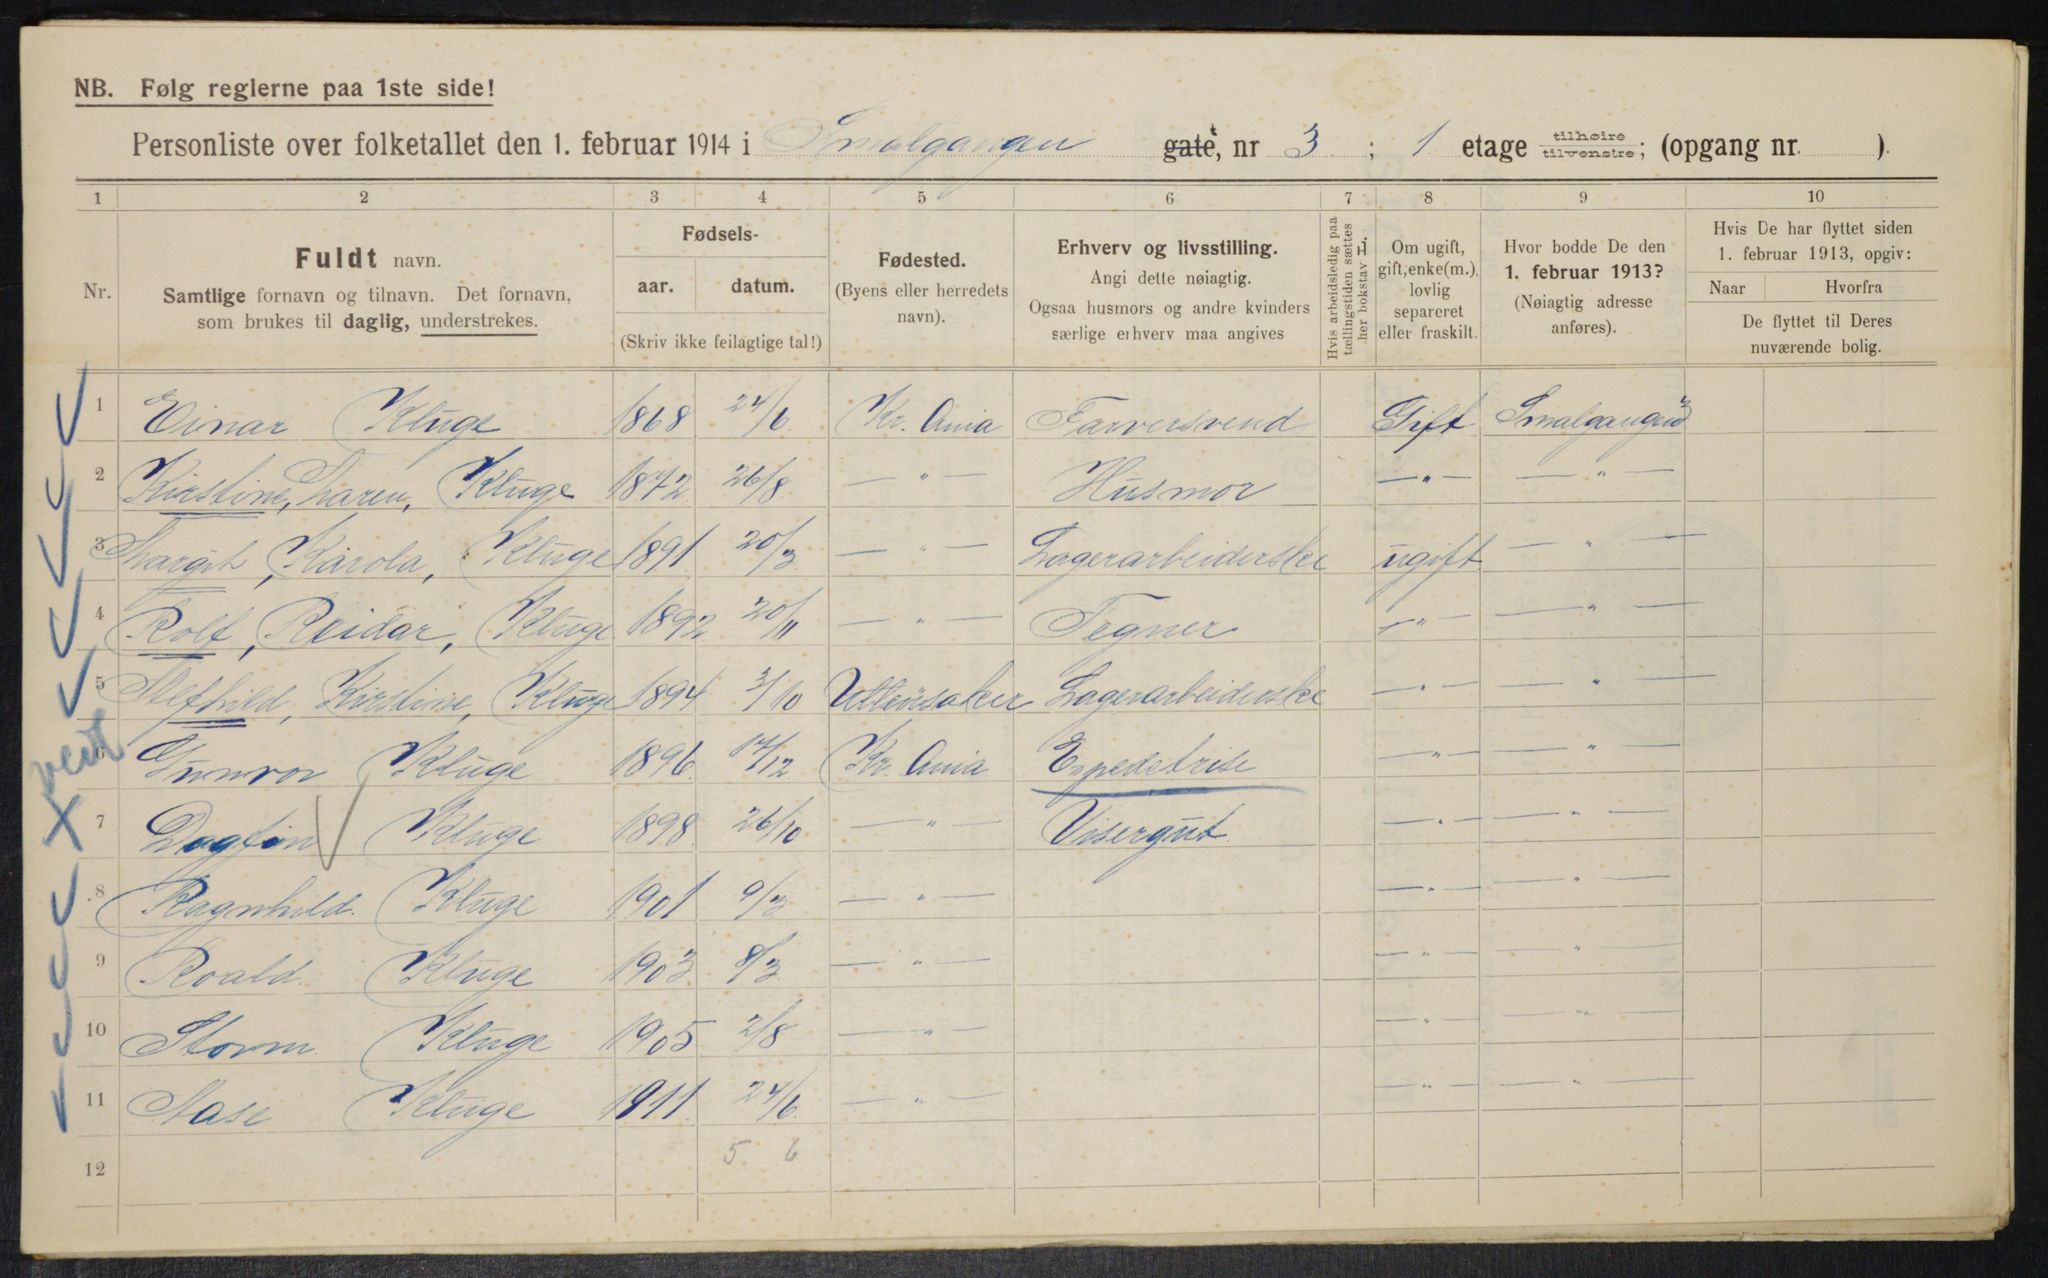 NB. Følg reglerne paa 1ste side!
Personliste over folketallet den 1. februar 1914 i Smalgangen gate, nr 3 ; 1 etage tilhøire tilvenstre; (opgang nr. ).
1 2 3 4 5 6 7 8 9 10
Nr.
Fuldt navn.
Samtlige fornavn og tilnavn. Det fornavn,
som brukes til daglig, understrekes.
Fødsels-
aar. datum.
(Skriv ikke feilagtige tal!)
Fødested.
(Byens eller herredets
navn).
Erhverv og livsstilling.
Angi dette nøiagtig.
Ogsaa husmors og andre kvinders
særlige erhverv maa angives
Hvis arbeidsledig paa
tællingstiden sættes
her bokstav L.
Om ugift,
gift, enke(m.),
lovlig
separeret
eller fraskilt.
Hvor bodde De den
1. februar 1913?
(Nøiagtig adresse
anføres).
Hvis De har flyttet siden
1. februar 1913, opgiv:
Naar Hvorfra
De flyttet til Deres
nuværende bolig.
1 Einar Kluge 1868 24/6 Kr. Ania Farversvend Gift Smalgangen 3
2 Kirstine, Maren, Kluge 1872 26/8 — " — Husmor — " — — " —
3 Margit, Karola, Kluge 1891 20/3 — " — Lagerarbeiderske ugift — " —
4 Rolf, Reidar, Kluge 1892 20/11 — " — Tegner — " — — " —
5 Alfhild, Kirstine, Kluge 1894 3/10 Ullensaker Lagerarbeiderske — " — — " —
6 Gunvor Kluge 1896 17/12 Kr. Ania Expedetrise — " — — " —
7 Dagfin Kluge 1898 26/10 — " — Visergut — " — — " —
8 Ragnhild Kluge 1901 9/3 — " — — " — — " —
9 Roald Kluge 1903 8/3 — " — — " — — " —
10 Storm Kluge 1905 2/8 — " — — " — — " —
11 Aase Kluge 1911 24/6 — " — — " — — " —
5. 6
12